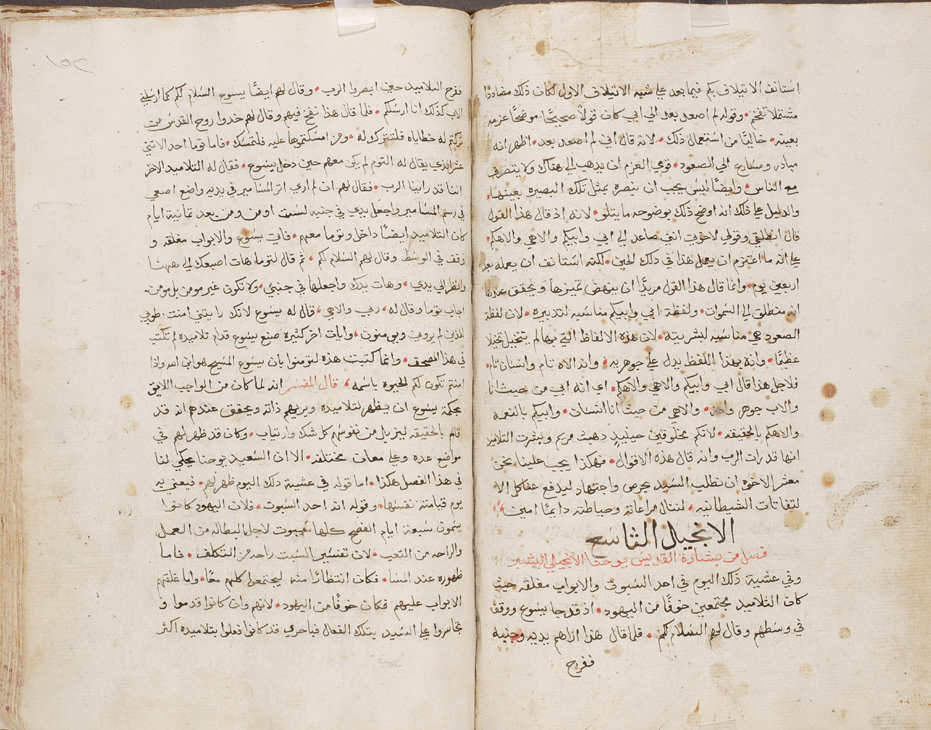 استانف الايتلاف بكم فيما بعد على شبه الايتلاف الاول لكان ذلك مضاددًا
وقوله لم اصعد بعد الى ابي كان قولاً صحيحًا موضحًا عزمه
بعينه • خاليًا من استعمال ذلك • لانه قال اني لم اصعد بعد • اظهر انه
مبادر ومسارع الى الصعود • فوعي العزم ان يذهب الى هناك ولا يتصرف
مع الناس • وايضًا ليس يجب ان نبصره بمثل تلك البصيره بعينها •
والدليل على ذلك انه اوضح ذلك بوضوحه ما يتلو • لانه اذ قال هذا القول
قال انطلقي وقولي لاخوتي انني صاعد الى ابي وابيكم والاهي والاهكم •
على انه ما اعتزم ان يعمل هذا في ذلك الحين • لكنه استانف ان يعمله بعد
اربعين يوم • وانما قال هذا القول مريدًا ان ينهض تمييزها ويحقق عندها
انه منطلق الى السموات • ولفظة ابي وابيكم مناسبه لتدبيره • لان لفظة
الصعود هي مناسبه لبشريته • لان هذه الالفاظ التي بها لم تتخيل تخيلا
عظيمًا • وانه بهذا اللفظ يدل على جوهريه • وانه الاه تام وانسان تام
فلاجل هذا قال ابي وابيكم والاهي والاهكم • اي انه ابي من حيث انا
والاب جوهر واحد • والاهي من حيث انا انسان • وابيكم بالنعمه
والاهكم بالحقيقه • لانكم مخلوقين حينيذٍ ذهبت مريم وبشرت التلاميذ
انها قد رات الرب وانه قال هذه الاقوال • فهكذا يجب علينا نحن
معشر الاخوه ان نطلب السيد بحرص واجتهاد ليدفع عنا كل الا
لتفاتات الشيطانيه • لننال مراعاته وحياطته دايمًا امين •
الانجيل التاسع
فصل من بشارة القديس يوحنا الانجيلي البشير
وفي عشية ذلك اليوم في احد السبوت والابواب مغلقه حيث
كان التلاميذ مجتمعين خوفًا من اليهود • اذ قد جا يسوع ووقف
في وسطهم وقال لهم السلام لكم • فلما قال هذا اراهم يديه وجنبه
ففرح
١٥٢
ففرح التلاميذ حين ابصروا الرب • وقال لهم ايضًا يسوع السلام لكم كما ارسلني
الاب كذلك انا ارسلكم • فلما قال هذا نفخ فيهم وقال لهم خذوا روح القدس من
تركتم له خطاياه فلتترك له • ومن امسكتموها عليه فلتمسك • فاما توما احد الاثني
عشر الذي يقال له التوم لم يكن معهم حين دخل يسوع • فقال له التلاميذ الاخر
اننا قد راينا الرب • فقال لهم ان لم ارى اثر المسامير في يديه واضع اصبعي
في رسم المسامير واجعل يدي في جنبه لست اومن ومن بعد ثمانية ايام
كان التلاميذ ايضًا داخل وتوما معهم • فاتى يسوع والابواب مغلقه و
وقف في الوسط وقال لهم السلام لكم • ثم قال لتوما هات اصبعك الى ههنا
وانظر الى يدي • وهات يدك واجعلها في جنبي • ولا تكون غير مومن بل مومن
اجاب توما وقال له • ربي والاهي • قال له يسوع لانك رايتني امنت طوبى
للذين لم يروني ويومنون • وايات اخر كثيره صنع يسوع قدام تلاميذه لم تكتب
في هذا المصحف • وانما كتبت هذه لتومنوا بان يسوع المسيح هو ابن الله واذا
امنتم تكون لكم الحيوه باسمه • قال المفسر انه لما كان من الواجب اللايق
بحكمة يسوع ان يظهر لتلاميذه ويريهم ذاته ويحقق عندهم انه قد
قام بالحقيقه ليزيل من نفوسهم كل شك وارتياب • وكان قد ظهر لهم في
مواضع عده وعلى معان مختلفه • الا ان السعيد يوحنا يحكي لنا
في هذا الفصل هكذا • اما قوله في عشية ذلك اليوم ظهر لهم • فيعني به
يوم قيامته نفسها • وقوله انه احد السبوت • فلان اليهود كانوا
يسمون سبعة ايام الفصح كلها سبوت لاجل البطاله من العمل
والراحه من التعب • لان تفسير السبت راحه من التكلف • فاما
ظهوره عند المسا • فكان انتظارًا منه ليجتمعوا كلهم معًا • واما غلقهم
الابواب عليهم فكان خوفًا من اليهود • لانهم وان كانوا قدموا و
تجاسروا على السيد بتلك الفعال فباحرى قد كانوا فعلوا بتلاميذه اكثر